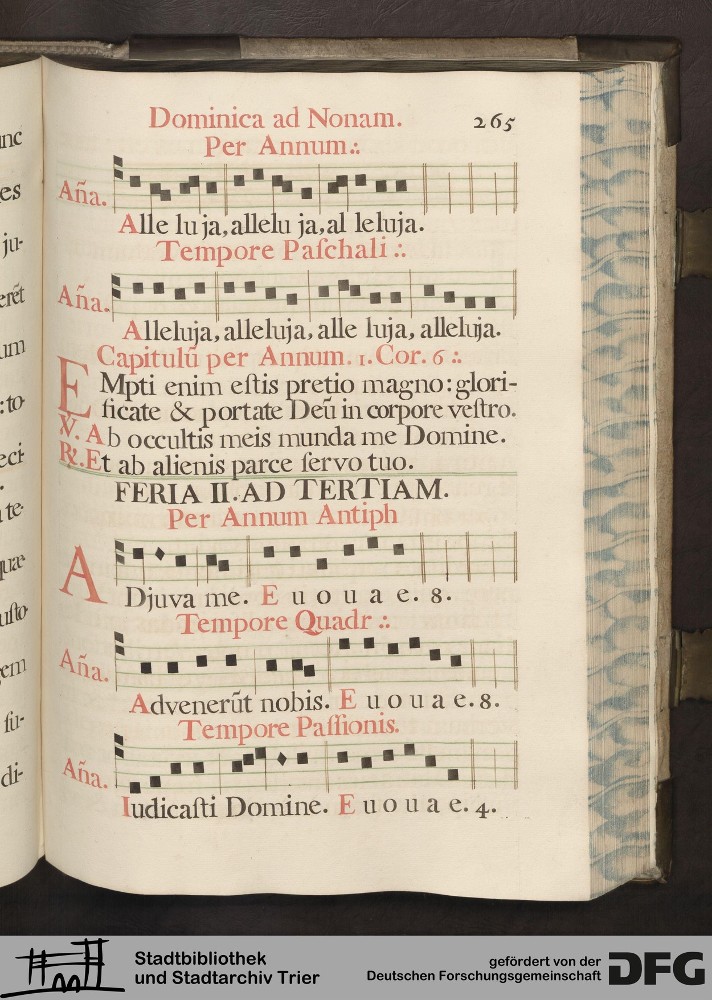 Dominica ad Nonam. 265
Per Annum.:
Aña.
Alle lu ja, allelu ja, al leluja.
Tempore Paſchali .:
Aña.
Alleluja, alleluja, alle luja, alleluja.
Capitulū per Annum. 1. Cor. 6 .:
EMpti enim eſtis pretio magno: glori-
ficate & portate Deū in corpore veſtro.
℣. Ab occultis meis munda me Domine.
℟. Et ab alienis parce ſervo tuo.
FERIA II. AD TERTIAM.
Per Annum Antiph
ADjuva me. E u o u a e. 8.
Tempore Quadr .:
Aña.
Advenerūt nobis. E u o u a e. 8.
Tempore Paſſionis.
Aña.
Iudicaſti Domine. E u o u a e. 4.
nc
es
ju-
erēt
um
: to
eci-
te-
quæ
uſto
em
ſu-
di-
Stadtbibliothek
und Stadtarchiv Trier
gefördert von der
Deutschen Forschungsgemeinschaft
DFG